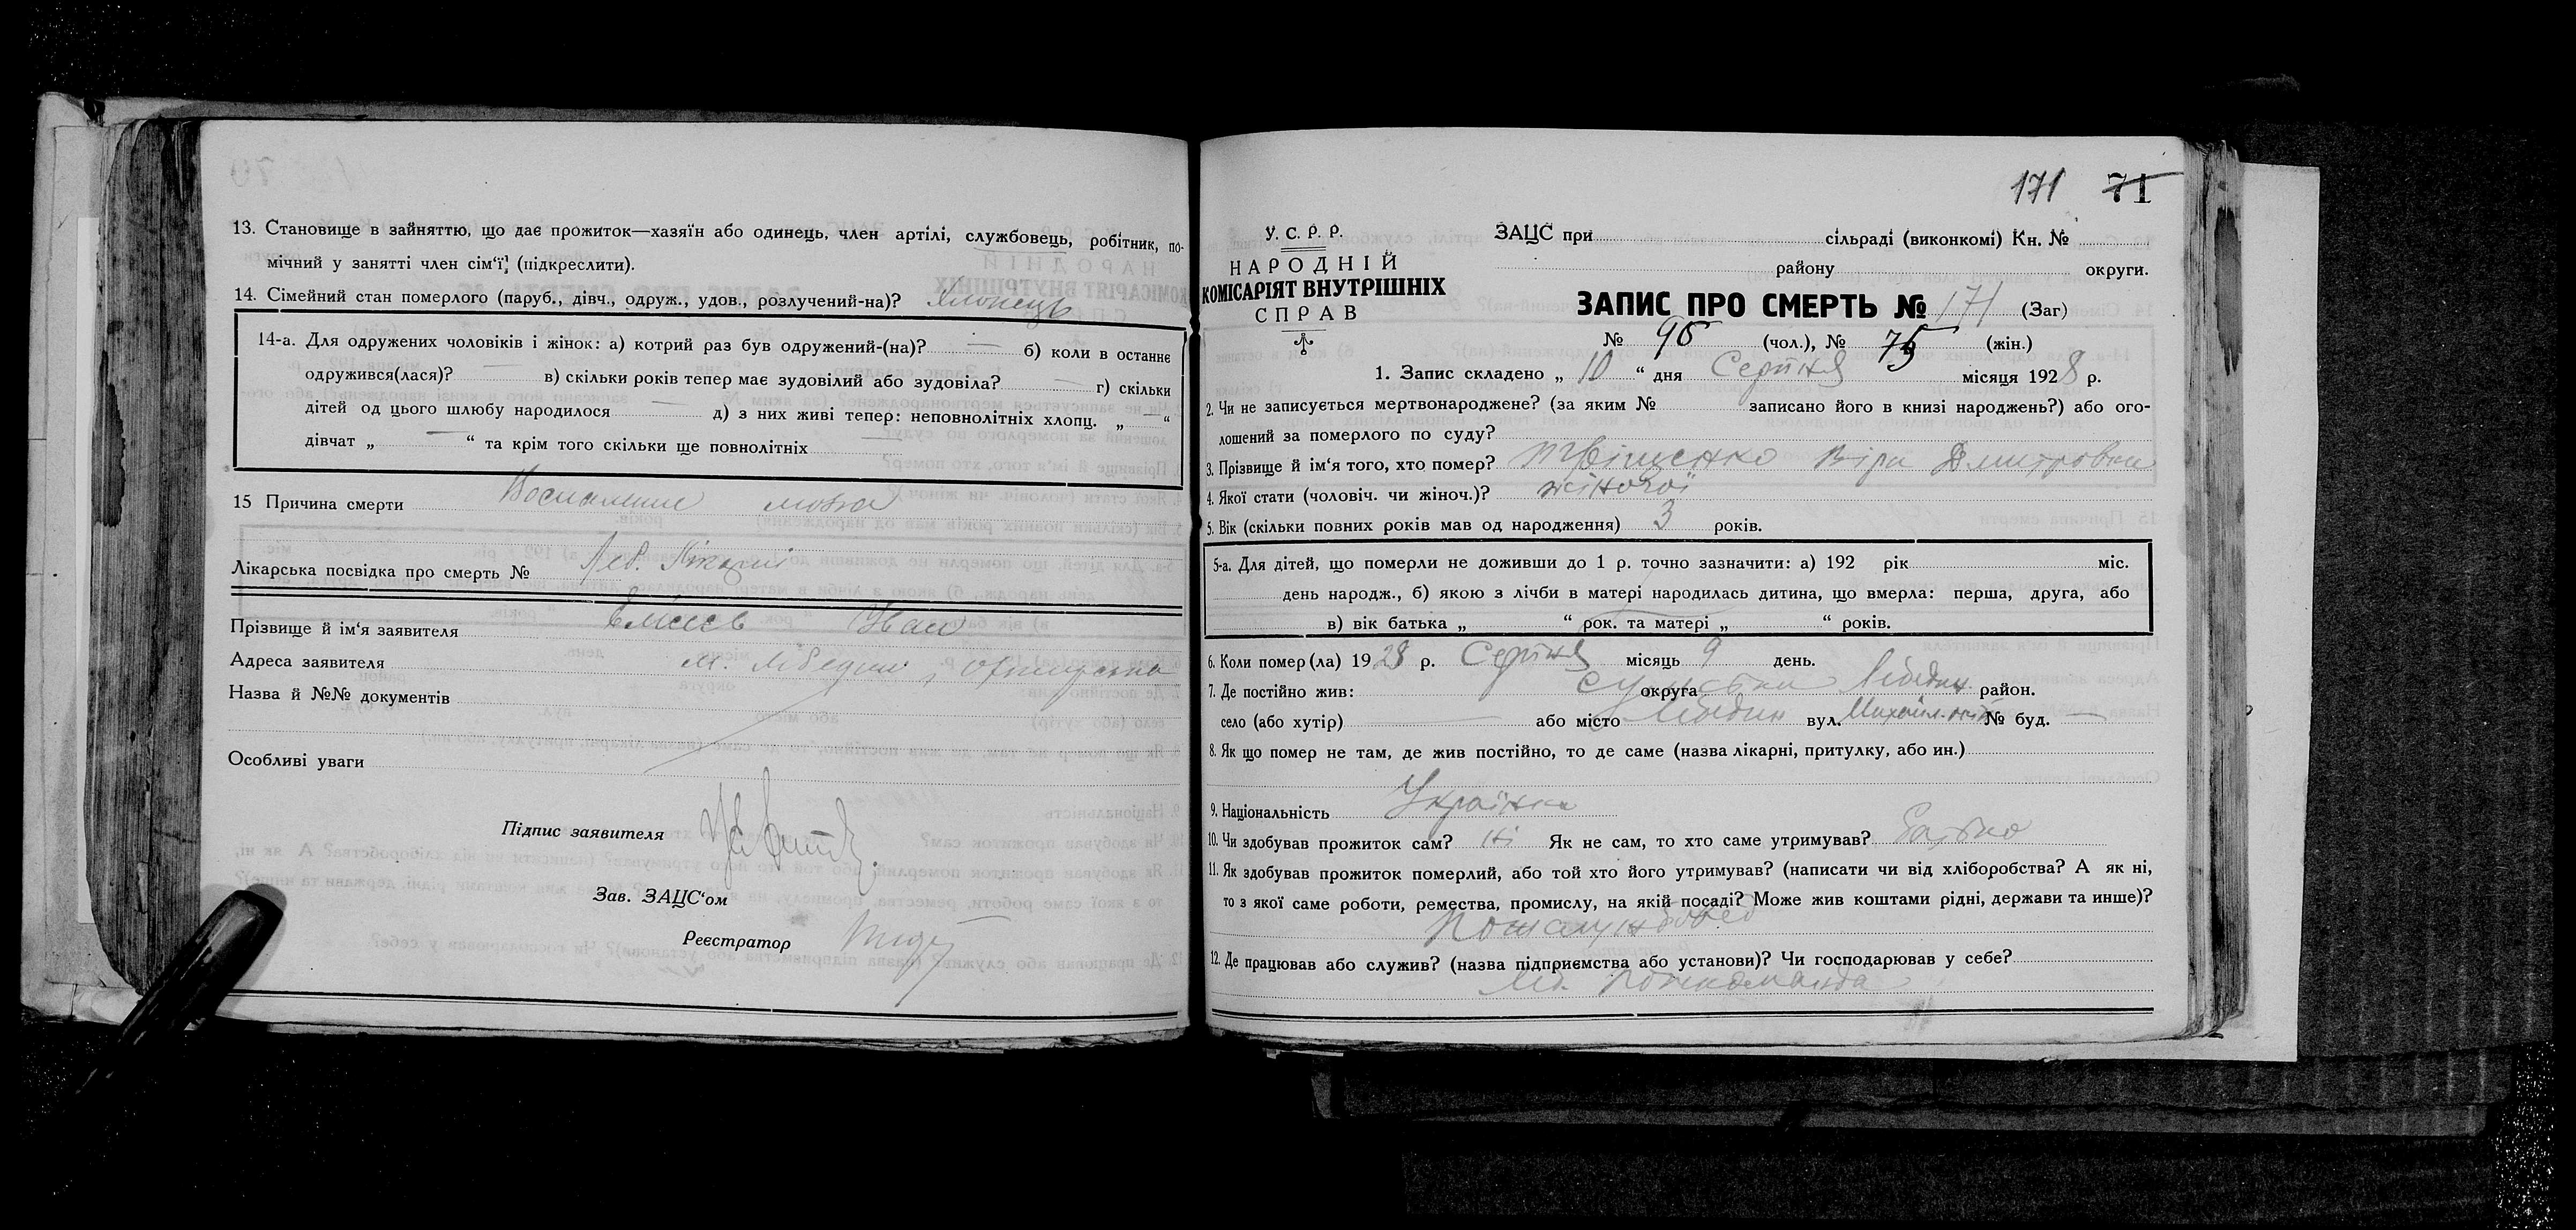 13. Становище в зайняттю, що дає прожиток—хазяїн або одинець, член артілі, службовець, робітник, по-
мічний у занятті член сім'ї, (підкреслити).
14. Сімейний стан померлого (паруб., дівч., одруж., удов., розлучений-на)? Хлопець
14-а. Для одружених чоловіків і жінок: а) котрий раз був одружений-(на)? — б) коли в останнє
одружився(лася)? — в) скільки років тепер має зудовілий або зудовіла? — г) скільки
дітей од цього шлюбу народилося — д) з них живі тепер: неповнолітніх хлопц. „ — “
дівчат „ — “ та крім того скільки ще повнолітніх —
15 Причина смерти Воспаление мозга
Лікарська посвідка про смерть № Леб. Лікарні
Прізвище й ім'я заявителя Іван
Адреса заявителя м. Лебедин,
Назва й №№ документів
Особливі уваги
Підпис заявителя
Зав. ЗАЦС'ом
Реєстратор
171 71
У. С. Р. Р.
НАРОДНІЙ
КОМІСАРІЯТ ВНУТРІШНІХ
СПРАВ
ЗАЦС при сільраді (виконкомі) Кн. №
району округи.
ЗАПИС ПРО СМЕРТЬ № 171 (Заг)
№ 96 (чол.), № 75 (жін.)
1. Запис складено „ 10 “ дня Серпня місяця 1928 р.
2. Чи не записується мертвонароджене? (за яким № записано його в книзі народжень?) або ого-
лошений за померлого по суду?
3. Прізвище й ім'я того, хто помер? Віра Дмитровна
4. Якої стати (чоловіч. чи жіноч.)? жіночої
5. Вік (скільки повних років мав од народження) 3 років.
5-а. Для дітей, що померли не доживши до 1 р. точно зазначити: а) 192 рік міс.
день народж., б) якою з лічби в матері народилась дитина, що вмерла: перша, друга, або
в) вік батька „ “ рок. та матері „ “ років.
6. Коли помер(ла) 1928 р. Серпня місяць 9 день.
7. Де постійно жив: Сумська округа Лебедин район.
село (або хутір) — або місто Лебедин вул. № буд. —
8. Як що помер не там, де жив постійно, то де саме (назва лікарні, притулку, або ин.)
9. Національність Українка
10. Чи здобував прожиток сам? ні Як не сам, то хто саме утримував? батько
11. Як здобував прожиток померлий, або той хто його утримував? (написати чи від хліборобства? А як ні,
то з якої саме роботи, ремества, промислу, на якій посаді? Може жив коштами рідні, держави та инше)?
12. Де працював або служив? (назва підприємства або установи)? Чи господарював у себе?
Леб. Пожкоманда